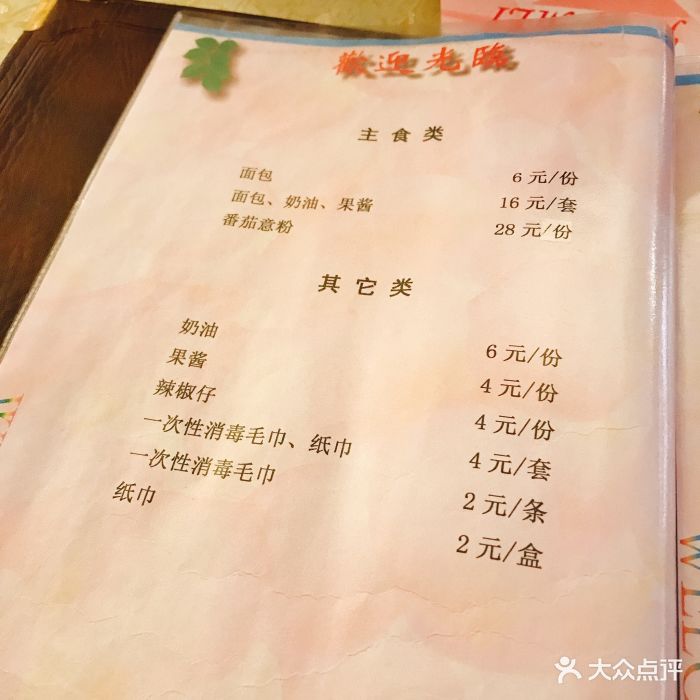 歡迎光臨
主食类
面包 6元/份
面包、奶油、果酱 16元/套
番茄意粉 28元/份
其它类
奶油 6元/份
果酱 4元/份
辣椒仔 4元/份
一次性消毒毛巾、纸巾 4元/套
一次性消毒毛巾 2元/条
纸巾 2元/盒
大众点评